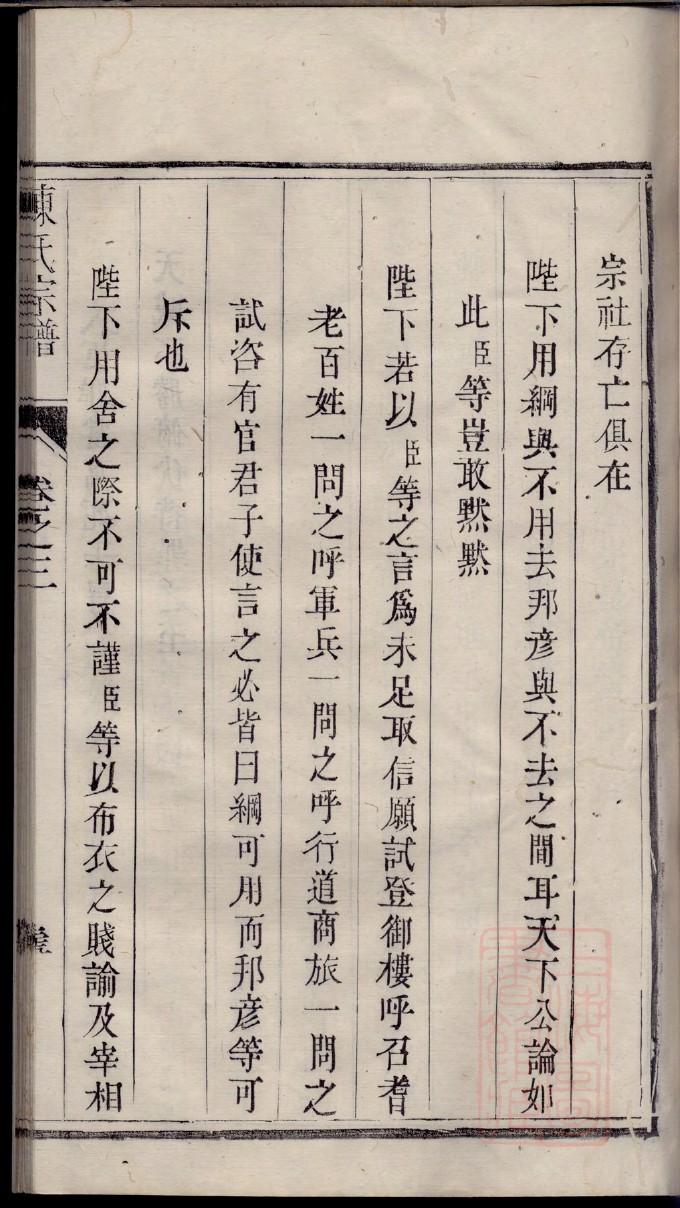 宗社存亡俱在
陛下用綱與不用去邦彦與不去之間耳天下公論如
此臣等豈敢默默
陛下若以臣等之言爲未足取信願試登御樓呼召耆
老百姓一問之呼軍兵一問之呼行道商旅一問之
試咨有官君子使言之必皆曰綱可用而邦彦等可
斥也
陛下用舍之際不可不謹臣等以布衣之賤論及宰相
陳氏宗譜
卷之三